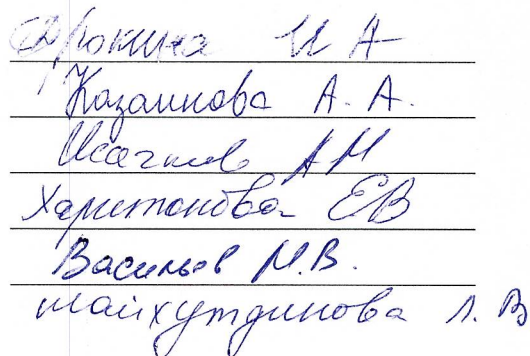 Дрокина И А
Казаикова А. А.
Исачков А М
Харитонова ЕВ
Васильев М.В.
шайхутдинова Л. В